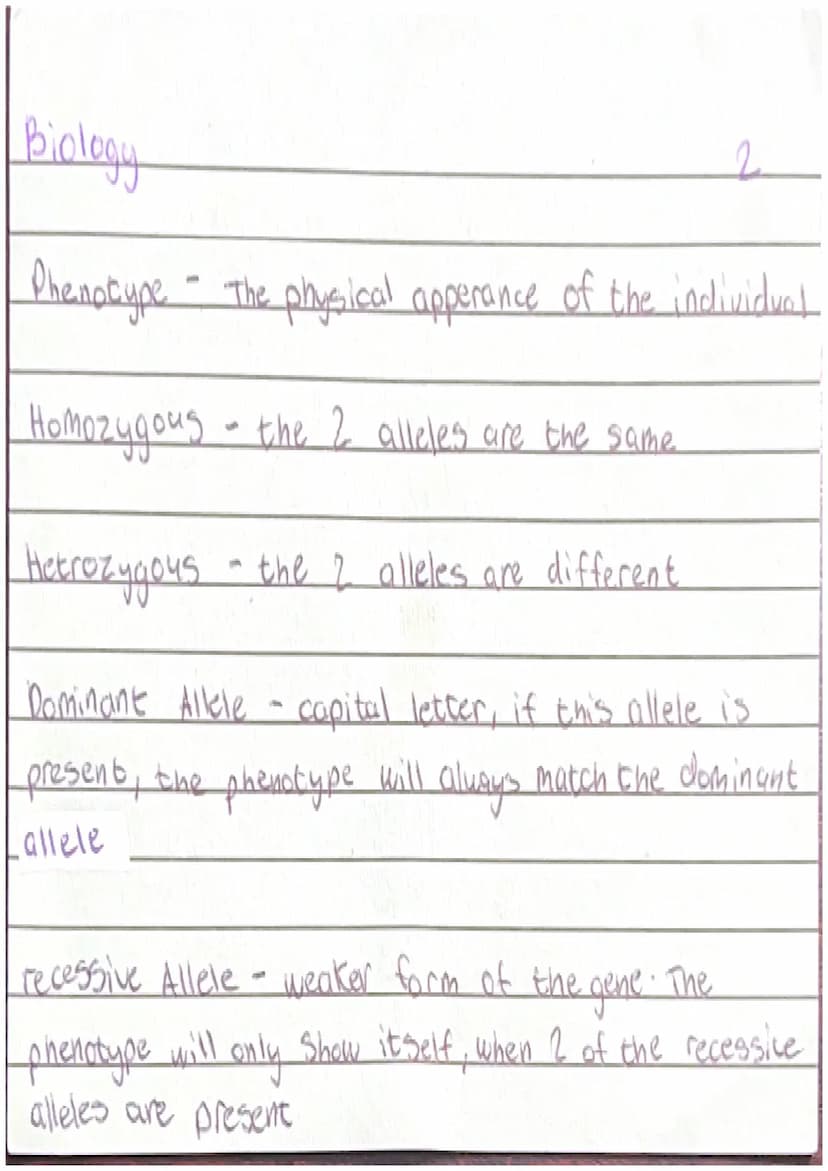 Biology
2
Phenotype - The physical apperance of the individual
Homozygous - the 2 alleles are the same
Hetrozygous - the 2 alleles are different
Dominant Allele - capital letter, if this allele is
present, the phenotype will always match the dominant
allele
recessive Allele - weaker form of the gene. The
phenotype will only show itself, when 2 of the recessive
alleles are present